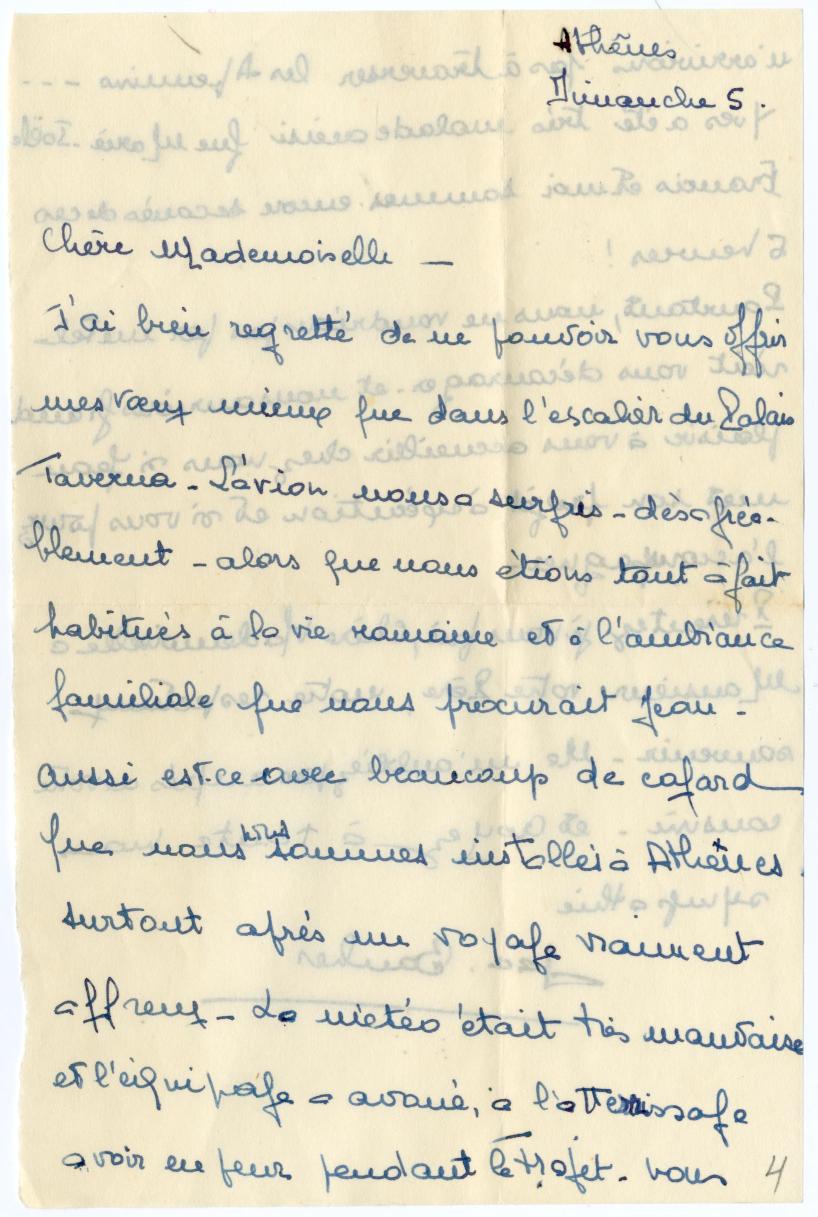 Athênes
Dimanche 5.
Chère Mademoiselle —
J'ai bien regretté de ne pouvoir vous offrir
mes vœux mieux que dans l'escalier du Palais
Taverna - L'avion nous a surpris - désagréa-
blement - alors que nous étions tout à fait
habitués à la vie romaine et à l'ambiance
familiale que nous procurait Jean -
aussi est-ce avec beaucoup de cafard
que nous nous sommes installés à Athênes.
surtout après un voyage vraiment
affreux - La météo était très mauvaise
et l'équipage a avoué, à l'atterrissage
avoir eu peur pendant le trajet. Vous
4